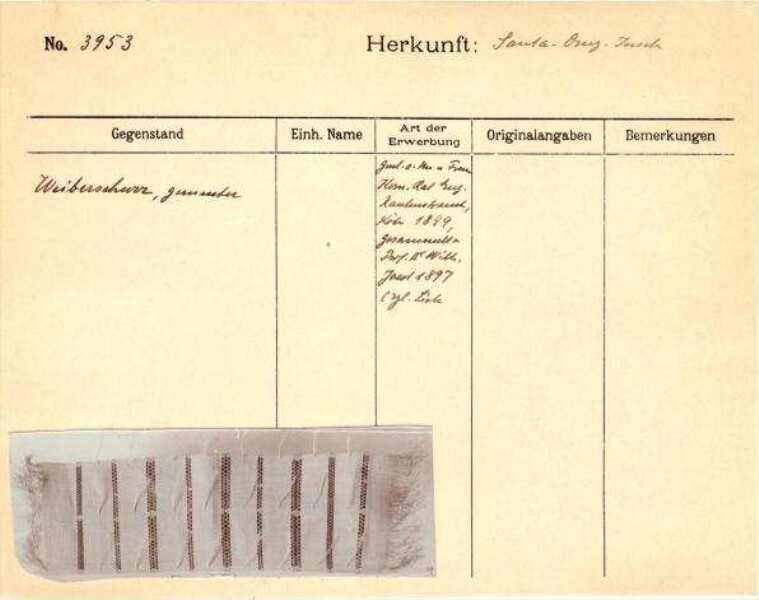 No. 3953
Herkunft: Santa-Cruz-Inseln
Gegenstand
Einh. Name
Art der
Erwerbung
Originalangaben
Bemerkungen
Weiberschurz, gemustert
Frau
Kom. Rat Eug.
Rautenstrauch,
Köln 1899,
gesammelt v.
Prof. Dr Wilh.
Joest 1897
(vgl. Liste